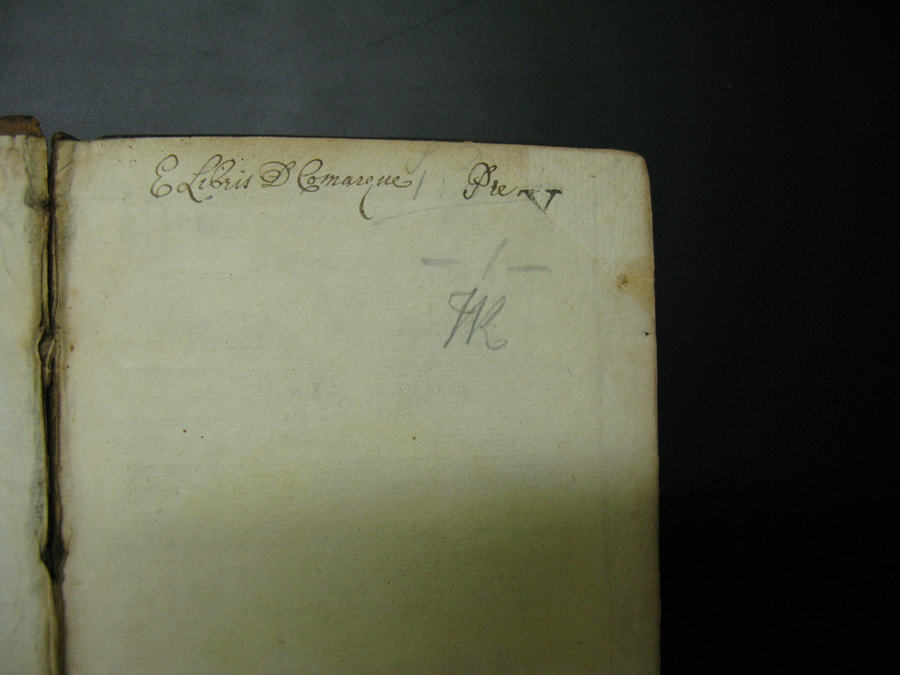 E Libris D Comarque Pre
— / —
HR